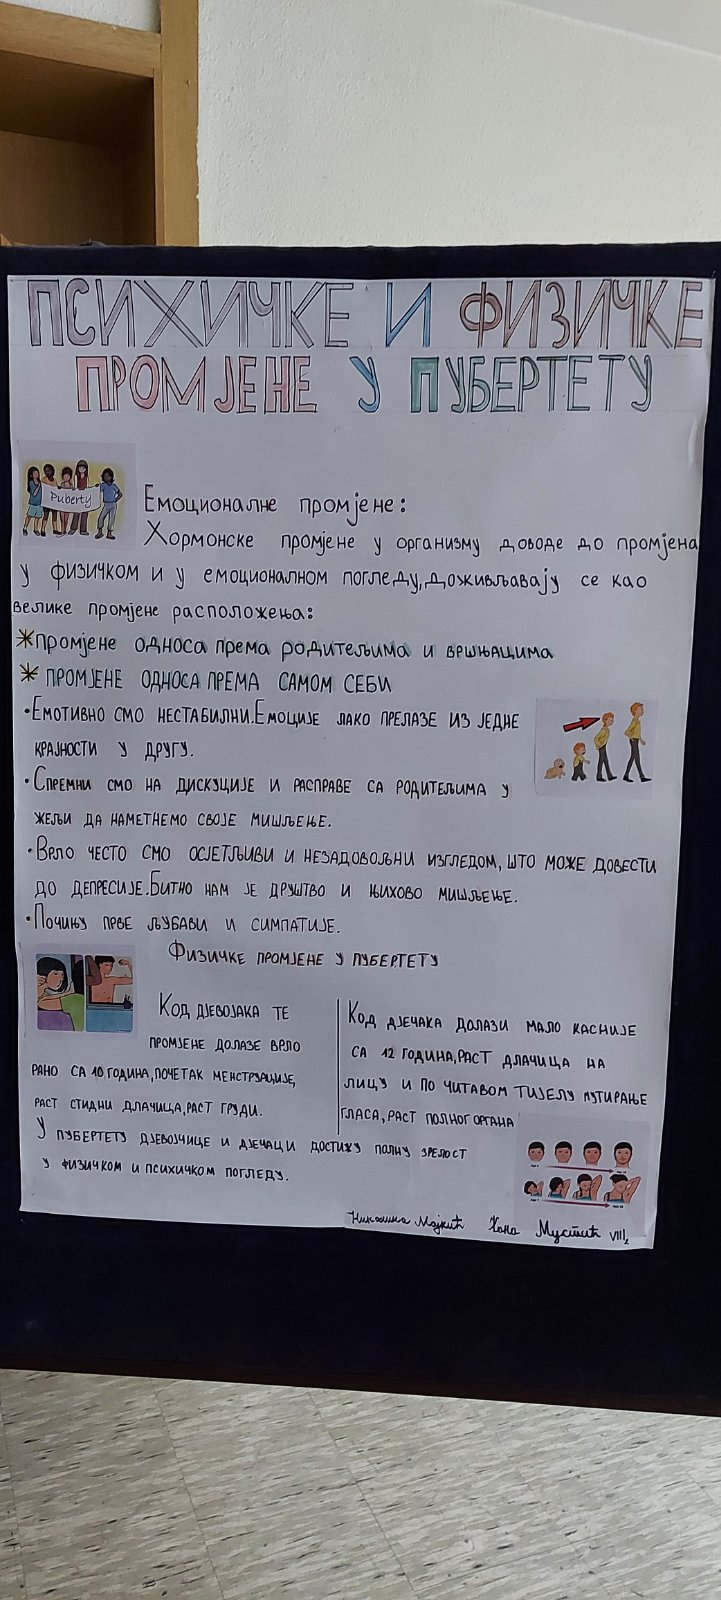 ПСИХИЧКЕ И ФИЗИЧКЕ
ПРОМЈЕНЕ У ПУБЕРТЕТУ
Puberty
Емоционалне промјене:
Хормонске промјене у организму доводе до промјена
у физичком и у емоционалном погледу,доживљавају се као
велике промјене расположења:
*промјене односа према родитељима и вршњацима
* ПРОМЈЕНЕ ОДНОСА ПРЕМА САМОМ СЕБИ
•ЕМОТИВНО СМО НЕСТАБИЛНИ.ЕМОЦИЈЕ ЛАКО ПРЕЛАЗЕ ИЗ ЈЕДНЕ
КРАЈНОСТИ У ДРУГУ.
•СПРЕМНИ СМО НА ДИСКУЦИЈЕ И РАСПРАВЕ СА РОДИТЕЉИМА У
ЖЕЉИ ДА НАМЕТНЕМО СВОЈЕ МИШЉЕЊЕ.
•ВРЛО ЧЕСТО СМО ОСЈЕТЉИВИ И НЕЗАДОВОЉНИ ИЗГЛЕДОМ, ШТО МОЖЕ ДОВЕСТИ
ДО ДЕПРЕСИЈЕ.БИТНО НАМ ЈЕ ДРУШТВО И ЊИХОВО МИШЉЕЊЕ.
•ПОЧИЊУ ПРВЕ ЉУБАВИ И СИМПАТИЈЕ.
ФИЗИЧКЕ ПРОМЈЕНЕ У ПУБЕРТЕТУ
КОД ДЈЕВОЈАКА ТЕ
ПРОМЈЕНЕ ДОЛАЗЕ ВРЛО
РАНО СА 10 ГОДИНА,ПОЧЕТАК МЕНСТРУАЦИЈЕ,
РАСТ СТИДНИ ДЛАЧИЦА,РАСТ ГРУДИ.
КОД ДЈЕЧАКА ДОЛАЗИ МАЛО КАСНИЈЕ
СА 12 ГОДИНА,РАСТ ДЛАЧИЦА НА
ЛИЦУ И ПО ЧИТАВОМ ТИЈЕЛУ МУТИРАЊЕ
ГЛАСА, РАСТ ПОЛНОГ ОРГАНА
У ПУБЕРТЕТУ ДЈЕВОЈЧИЦЕ И ДЈЕЧАЦИ ДОСТИЖУ ПОЛНУ ЗРЕЛОСТ
У ФИЗИЧКОМ И ПСИХИЧКОМ ПОГЛЕДУ.
Николина Мајкић Мустић VIII₂